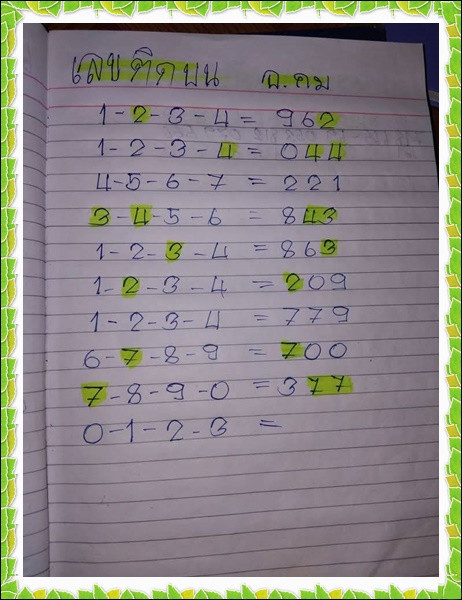 เลขติดบน อ.คม
1-2-3-4 = 962
1-2-3-4 = 044
4-5-6-7 = 221
3-4-5-6 = 843
1-2-3-4 = 863
1-2-3-4 = 209
1-2-3-4 = 779
6-7-8-9 = 700
7-8-9-0 = 377
0-1-2-3 =